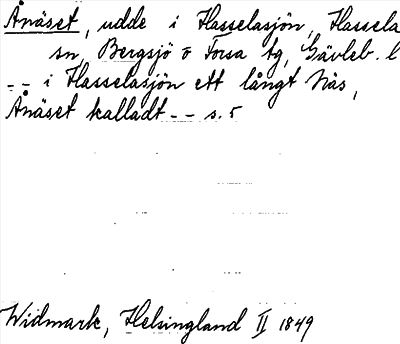 Ånäset, udde i Hasselasjön, Hassela
sn, Bergsjö o Forsa tg, Gävleb. l
-- i Hasselasjön ett långt Näs,
Ånäset kalladt -- s. 5
Widmark, Helsingland II 1849